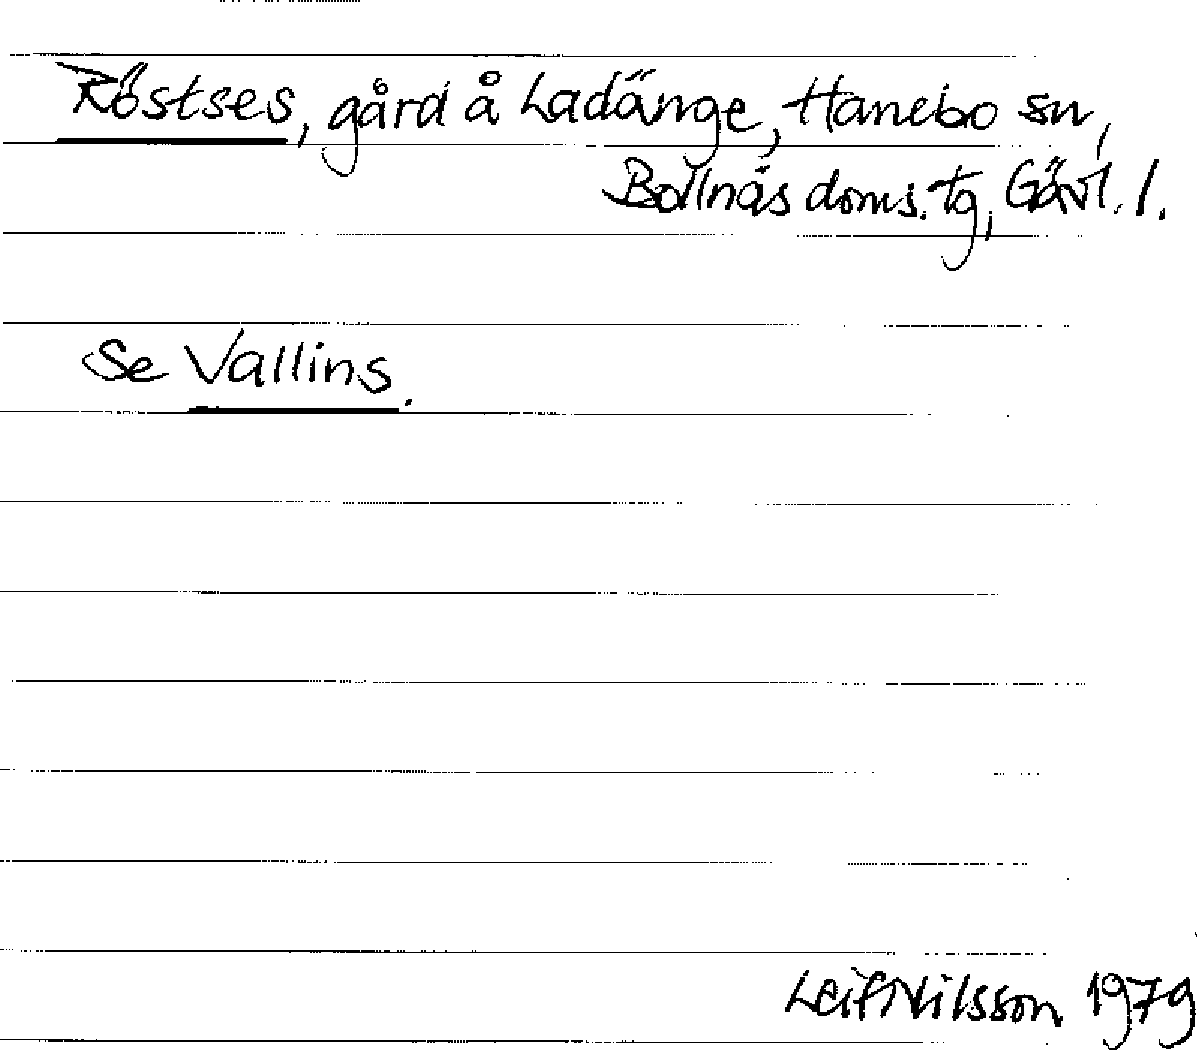 Röstses, gård å Ladänge, Hanebo sn,
Bollnäs doms. tg, Gävl. l.
Se Vallins.
Leif Nilsson 1979